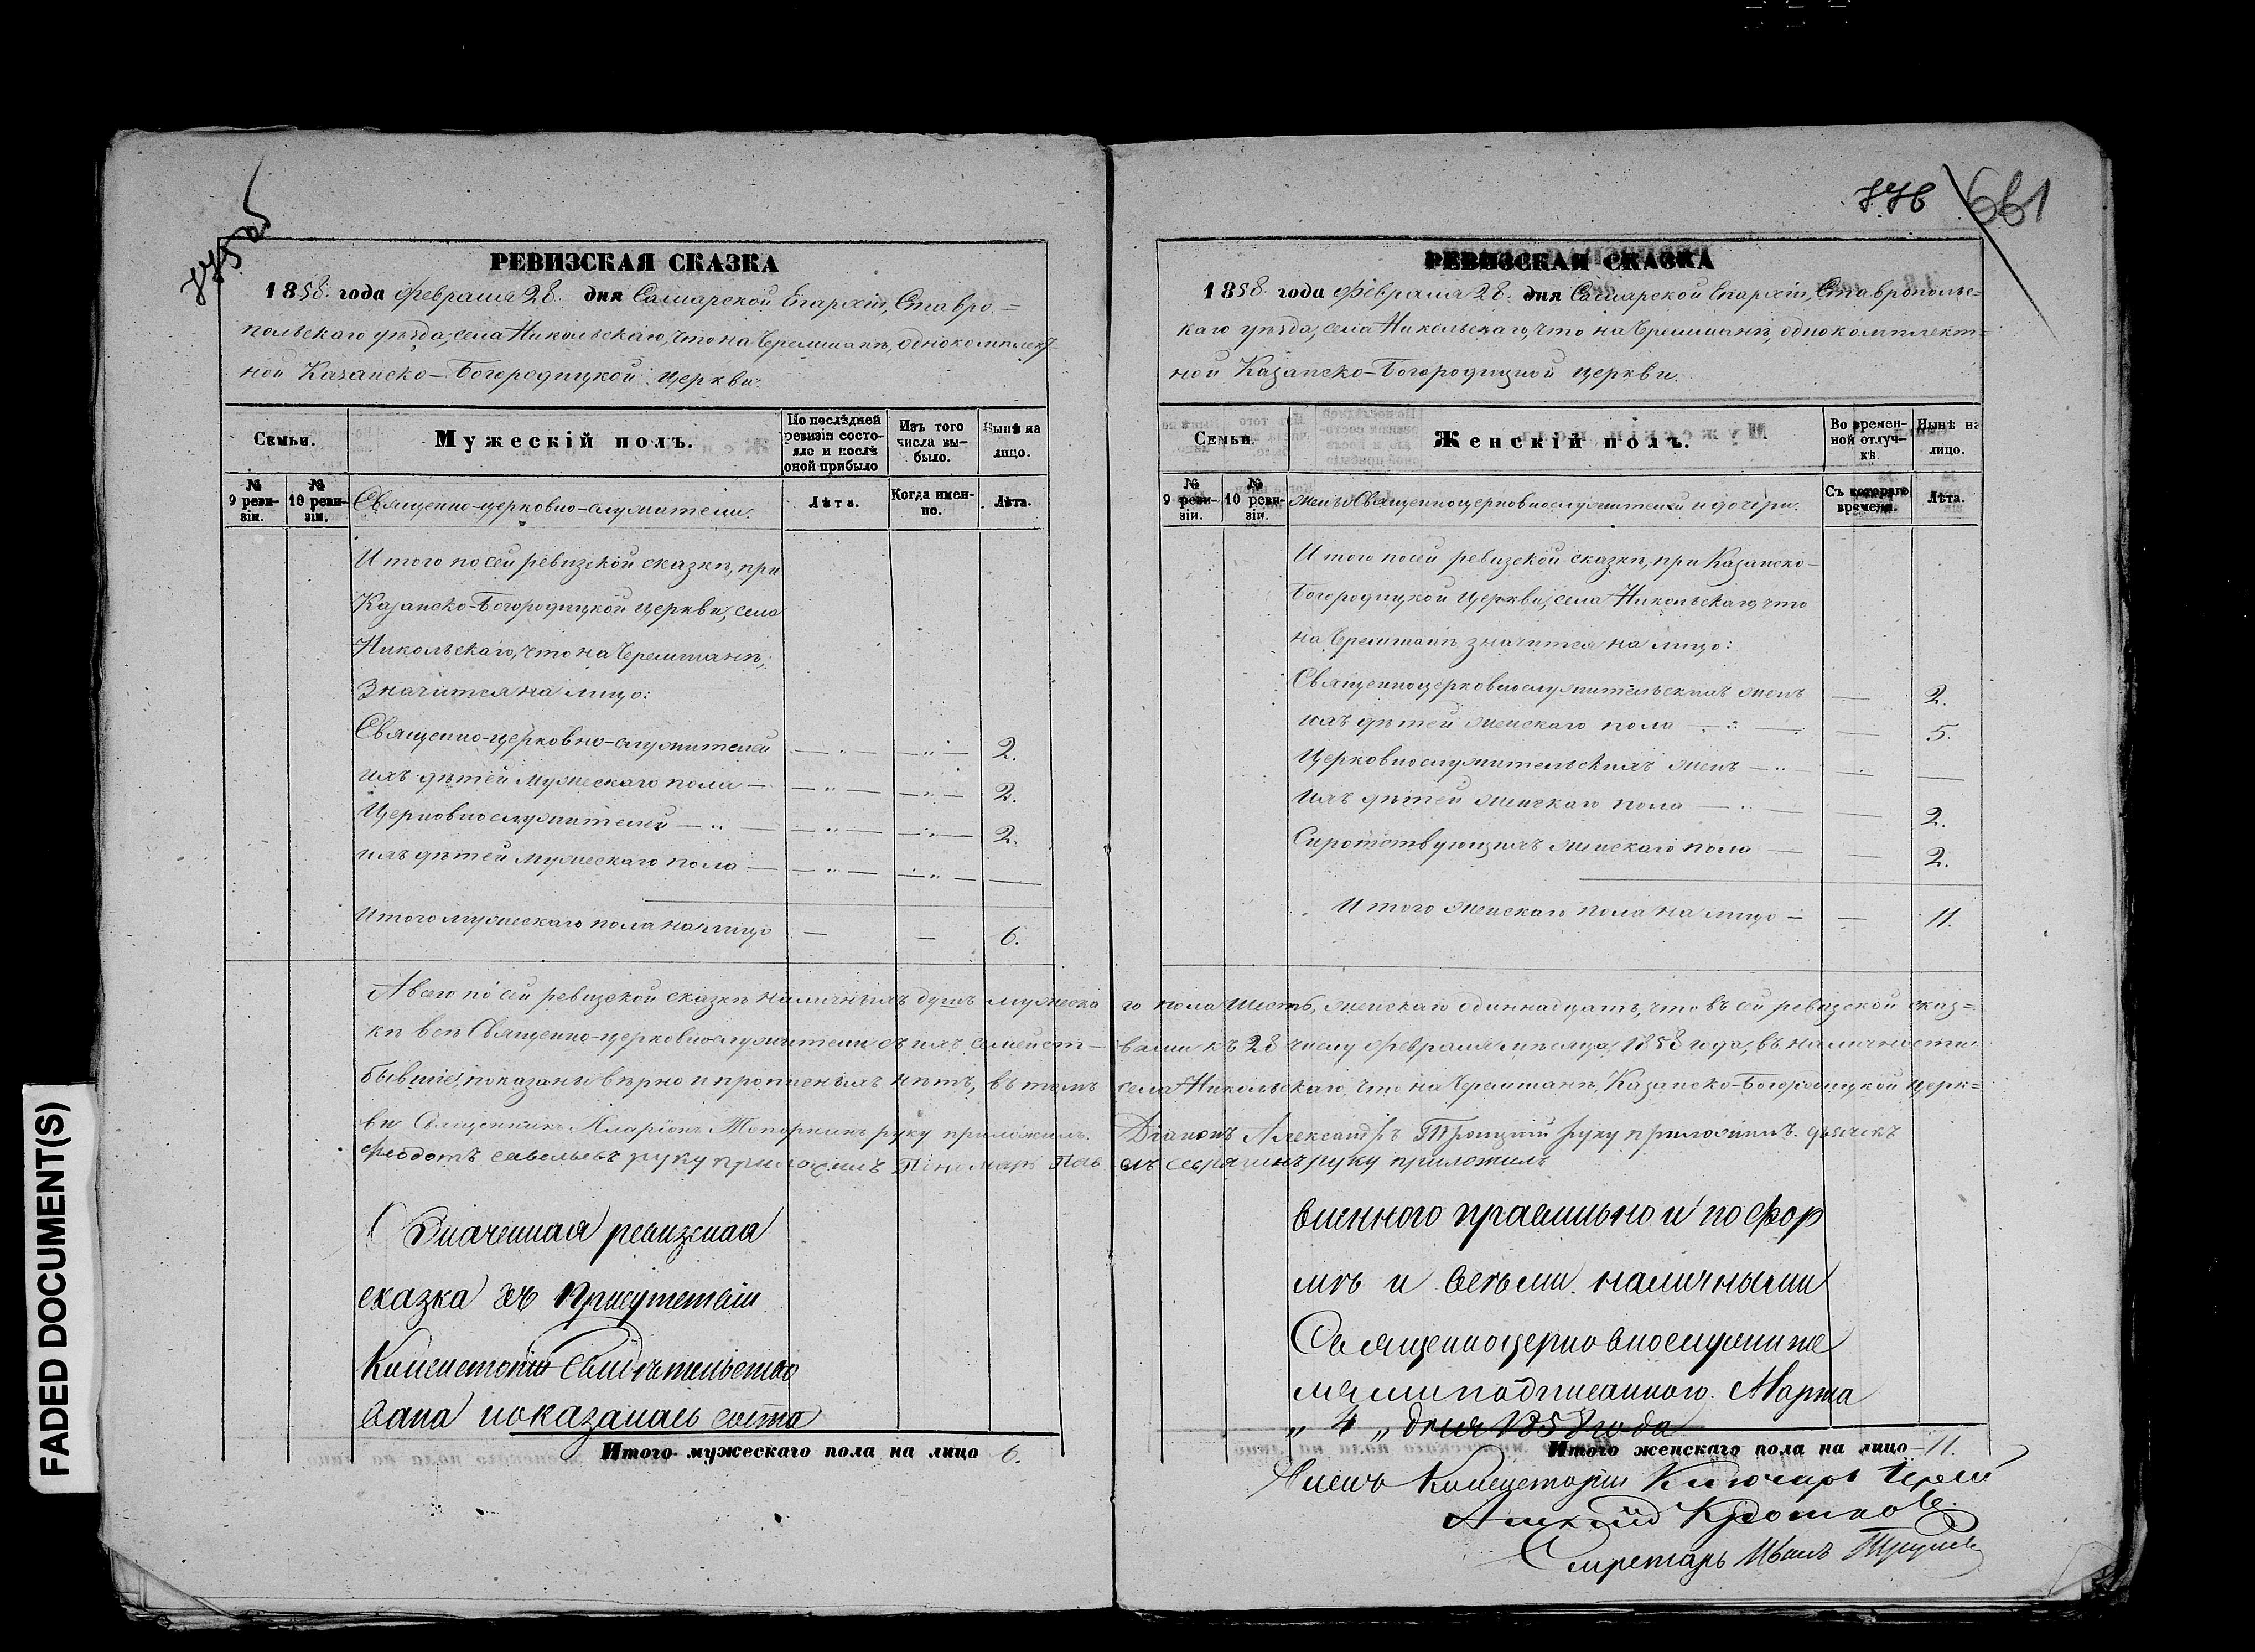 775 об
РЕВИЗСКАЯ СКАЗКА
1858. года Февраля 28. дня Самарской Епархіи, Ставро=
польскаго уѣзда, села Никольскаго, что на Черемшанѣ, однокомплект=
ной Казанско-Богородицкой церкви.
Семьи.
Мужескій полъ.
По послѣдней ревизіи состояло и послѣ оной прибыло
Изъ того числа выбыло.
Нынѣ на лицо.
№ 9 ревизіи.
№ 10 ревизіи.
Священно-церковно-служители.
Лѣта.
Когда именно.
Лѣта.
Итого по сей ревизской сказкѣ, при
Казанско-Богородицкой церкви, села
Никольскаго, что на Черемшанѣ,
значится на лицо:
Священно-церковно-служителей — „ — — „ — 2.
ихъ дѣтей мужескаго пола — — „ — — „ — 2.
Церковнослужителей — „ — — „ — — „ — 2.
ихъ дѣтей мужескаго пола — — „ — — „ — —
Итого мужескаго пола на лицо — — 6.
776
661
РЕВИЗСКАЯ СКАЗКА
1858. года Февраля 28. дня Самарской Епархіи, Ставропольс=
каго уѣзда, села Никольскаго, что на Черемшанѣ, однокомплект=
ной Казанско-Богородицкой церкви.
Семьи.
Женскій полъ.
Во временной отлучкѣ.
Нынѣ на лицо.
№ 9 ревизіи.
№ 10 ревизіи.
жены Священноцерковнослужителей и дочери.
Съ котораго времени.
Лѣта.
Итого по сей ревизской сказкѣ, при Казанско-
Богородицкой церкви, села Никольскаго, что
на Черемшанѣ значится на лицо:
Священноцерковнослужительскихъ женъ — 2.
ихъ дѣтей женскаго пола — „ — — 5.
Церковнослужительскихъ женъ — „ — „ —
Ихъ дѣтей женскаго пола — „ — — 2.
Сиротствующихъ женскаго пола — — 2.
Итого женскаго пола на лицо — — 11.
А всего по сей ревизской сказкѣ наличныхъ душъ мужеска го пола шесть, женскаго одиннадцать, что въ сей ревизской сказ=
кѣ всѣ Священно-церковнослужители съ ихъ семейст- вами къ 28 числу Февраля мѣсяца, 1858 года, въ наличности
бывшіе, показаны вѣрно и прописныхъ нѣтъ, въ томъ села Никольскаго, что на Черемшанѣ, Казанско-Богородицкой церк=
ви Священникъ Иларіонъ Топорнинъ руку приложилъ. Діаконъ Александръ Троицкій руку приложилъ. дьячекъ
Феодотъ Савельевъ руку приложилъ Пономарь Пав елъ руку приложилъ
Означенная ревизская
сказка въ Присутствіи
Консисторіи свидѣтельство
вана показалась соста
Итого мужескаго пола на лицо 6.
вленного правильно и по фор
мѣ и всѣми наличными
Священноцерковнослужите
лями подписанного. Марта
„ 4 „ дня 1858 года
Итого женскаго пола на лицо 11.
Членъ Консисторіи Ключарь Іерей
Алексій Кротковъ.
Секретарь Иванъ
FADED DOCUMENT(S)